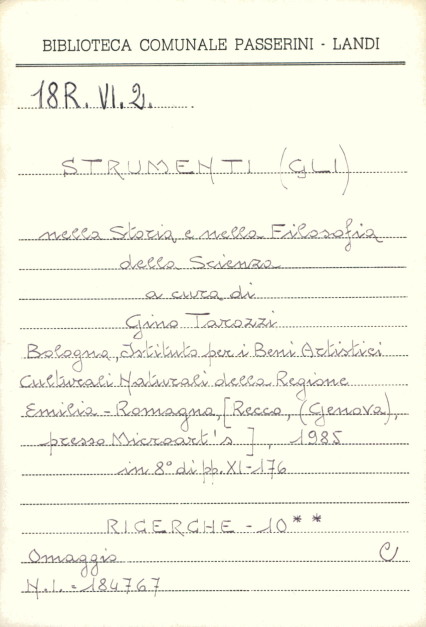 BIBLIOTECA COMUNALE PASSERINI - LANDI
18R. VI. 2.
STRUMENTI (GLI)
nella Storia e nella Filosofia
della Scienza
a cura di
Gino Tarozzi
Bologna, Istituto per i Beni Artistici
Culturali Naturali della Regione
Emilia-Romagna, [Recco, (Genova),
presso Microart's], 1985
in 8° di pp. XI-176
RICERCHE - 10**
Omaggio C
N.I. = 184767